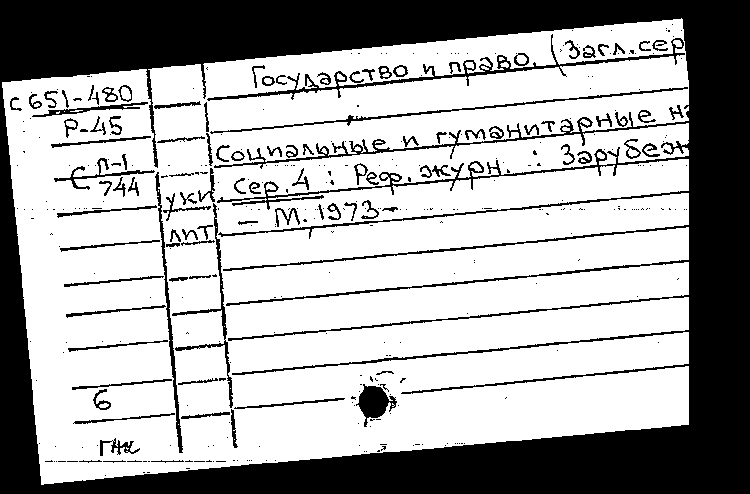 Государство и право. (Загл. сер
С651-480
Р-45
Социальные и гуманитарные на
С П-1
744
Сер. 4 : Реф. журн. : Зарубеж
укн
лит
– М. 1973–
6